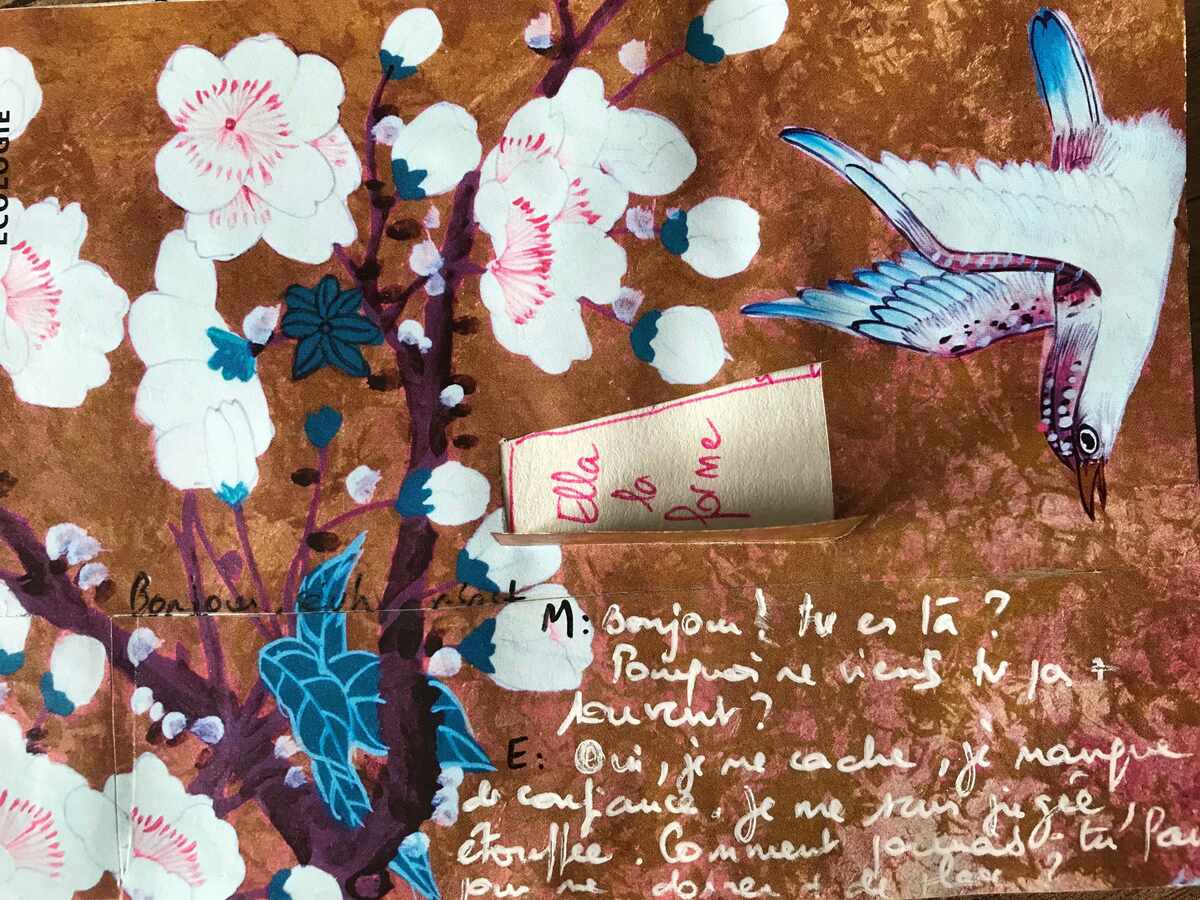 ECOLOGIE
Ella
la
forme
Bonjour,
M: Bonjour! tu es là ?
Pourquoi ne viens tu pas +
souvent ?
E: Oui, je me cache, je manque
de confiance. Je me sens jugée,
étouffée. Comment pourrais-tu
pour me donner + de ?